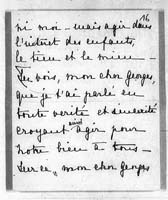 16
ni moi - mais agir dans
l'intérêt des enfants,
le tien et le mien -
Tu vois, mon cher Georges,
que je t'ai parlé en
toute vérité et sincérité
croyant ainsi agir pour
notre bien à tous -
mon cher Georges